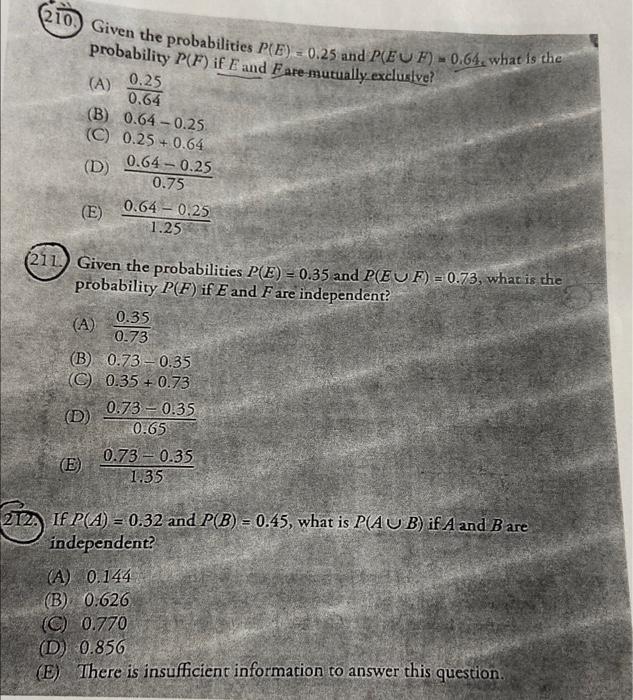 210. Given the probabilities P(E) = 0.25 and P(E ∪ F) = 0.64, what is the
probability P(F) if E and F are mutually exclusive?
(A) 0.25
0.64
(B) 0.64 – 0.25
(C) 0.25 + 0.64
(D) 0.64 – 0.25
0.75
(E) 0.64 – 0.25
1.25
211. Given the probabilities P(E) = 0.35 and P(E ∪ F) = 0.73, what is the
probability P(F) if E and F are independent?
(A) 0.35
0.73
(B) 0.73 – 0.35
(C) 0.35 + 0.73
(D) 0.73 – 0.35
0.65
(E) 0.73 – 0.35
1.35
212. If P(A) = 0.32 and P(B) = 0.45, what is P(A ∪ B) if A and B are
independent?
(A) 0.144
(B) 0.626
(C) 0.770
(D) 0.856
(E) There is insufficient information to answer this question.